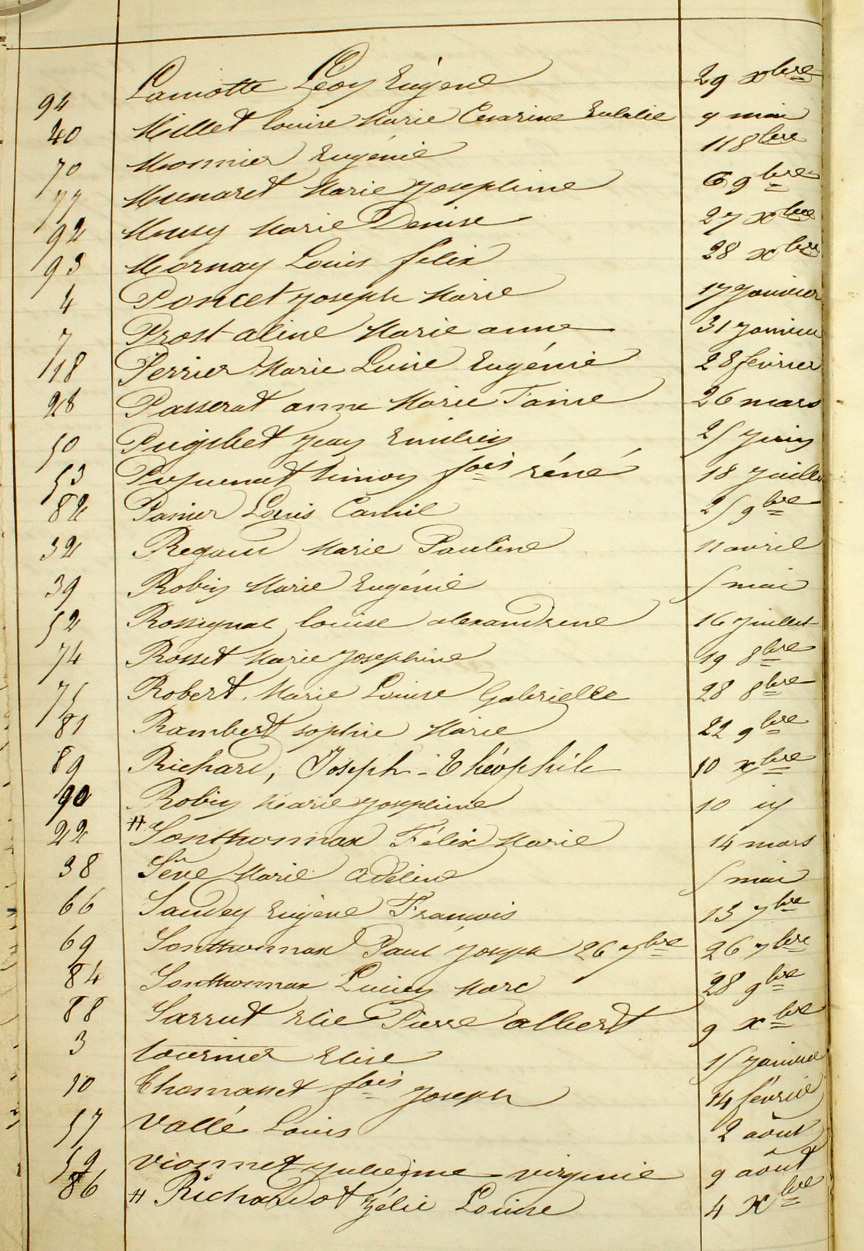 94 Lamotte Léon Eugène 29 xbre
40 Millet louise Marie Cesarine Eulalie 9 mai
70 Monnier Eugénie 11 8bre
77 Munaret Marie Josephine 6 9bre
92 Marie Denise 27 xbre
93 Mornay Louis félix 28 xbre
4 Poncet Joseph Marie 17 Janvier
7 Prost aline Marie anne 31 Janvier
18 Perrier Marie Eugénie 28 février
28 Passerat anne Marie 26 mars
50 Jean 25 Juin
53 fois réné 18 Juillet
82 Panier Louis Camil 25 9bre
32 Regaud Marie Pauline 11 avril
39 Robin Marie Eugénie 5 mai
52 Rossignol louise alexandrine 16 Juillet
74 Rosset Marie Josephine 19 8bre
75 Robert Marie Louise Gabrielle 28 8bre
81 Rambert sophie Marie 22 9bre
89 Richard, Joseph-Théophile 10 xbre
90 Robin Marie Josephine 10
22 Sonthonnax Félix Marie 14 mars
38 Sève Marie Adeline 5 mai
66 Eugène François 13 7bre
69 Sonthonnax Paul Joseph 26 7bre 26 7bre
84 Sonthonnax Lucien Marc 28 9bre
88 Sarrut Elie Pierre albert 9 xbre
3 tournier Elise 15 Janvier
10 Thomasset fois Joseph 14 février
57 Vallé Louis 2 août
59 Vionnet Julienne virginie 9 août
86 Richardot Zélie Louise 4 xbre